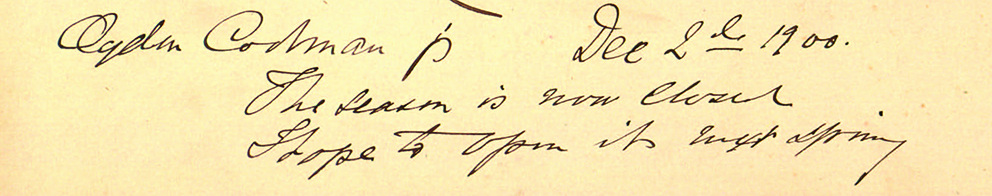 Ogden Codman jr Dec 2de 1900.
The season is now closed
I hope to open it next spring